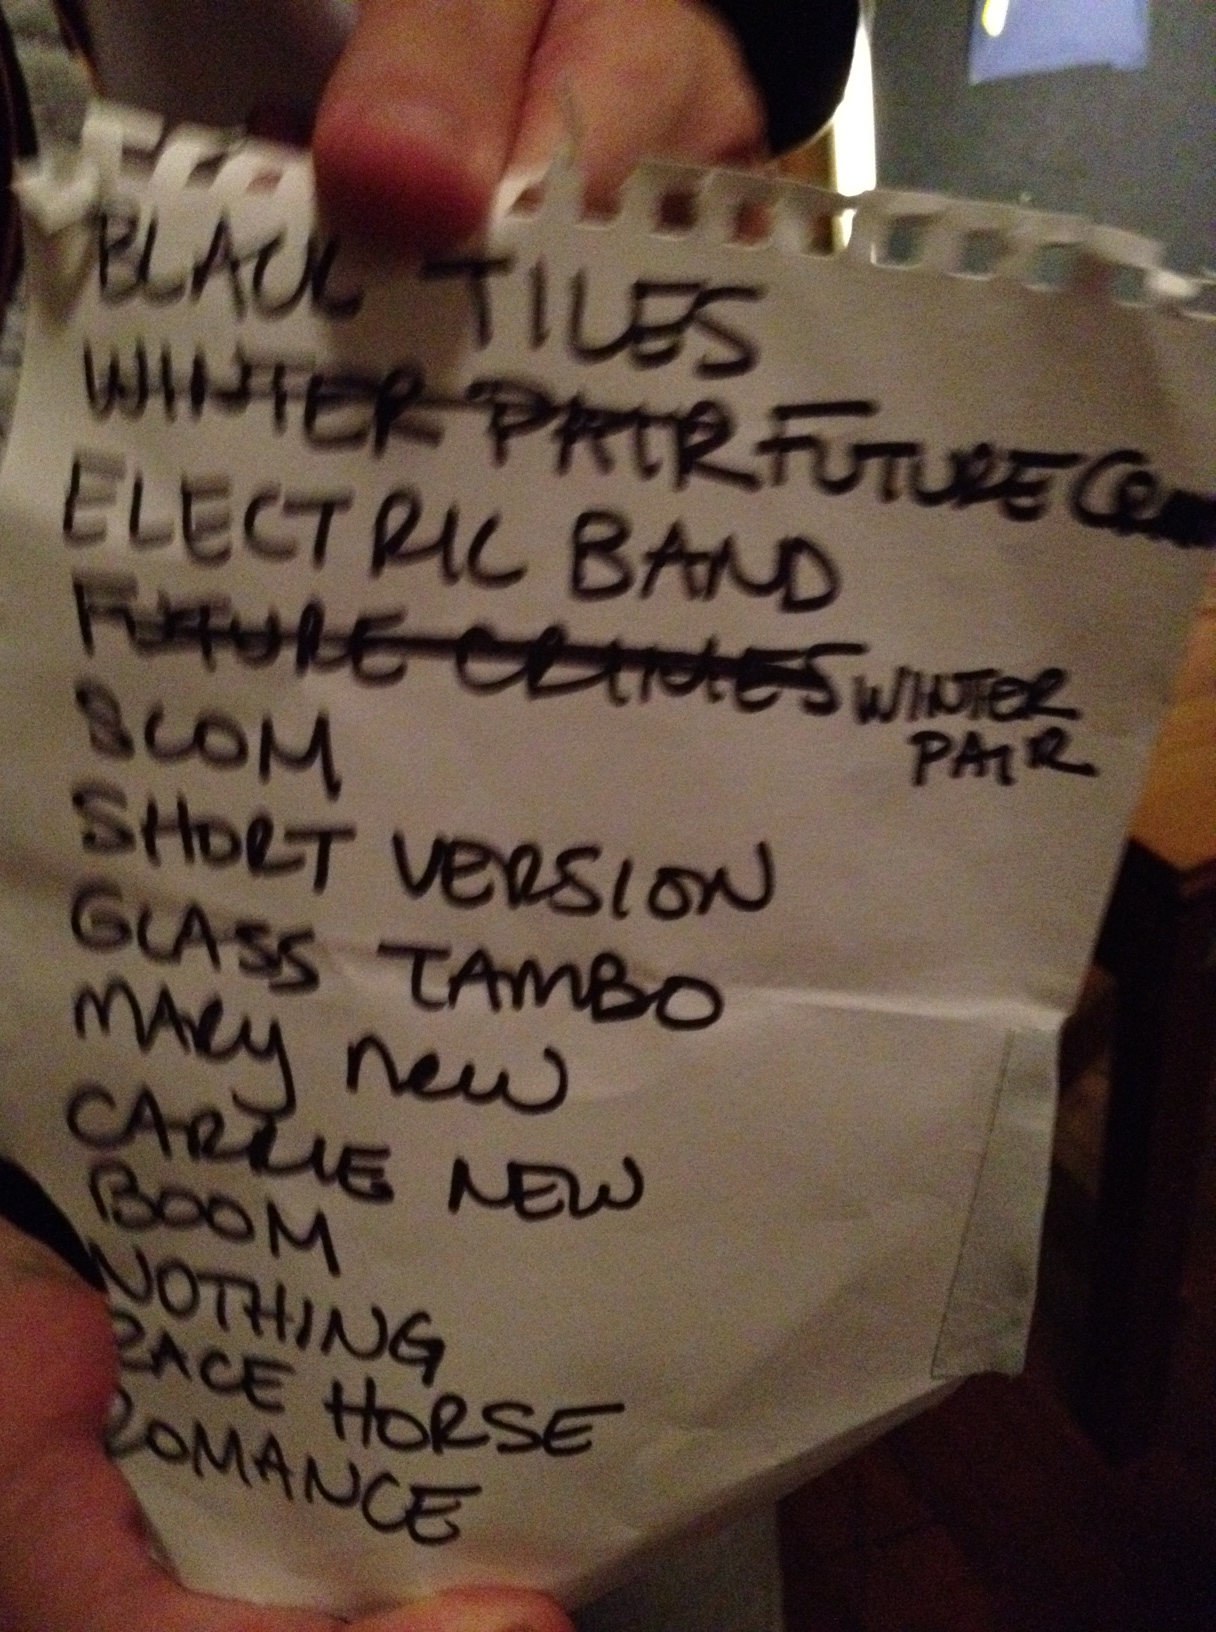 BLACK TILES
WINTER PAIR FUTURE
ELECTRIC BAND
FUTURE CRIMES WINTER
PAIR
SHORT VERSION
GLASS TAMBO
MARY new
CARRIE NEW
BOOM
NOTHING
RACE HORSE
ROMANCE